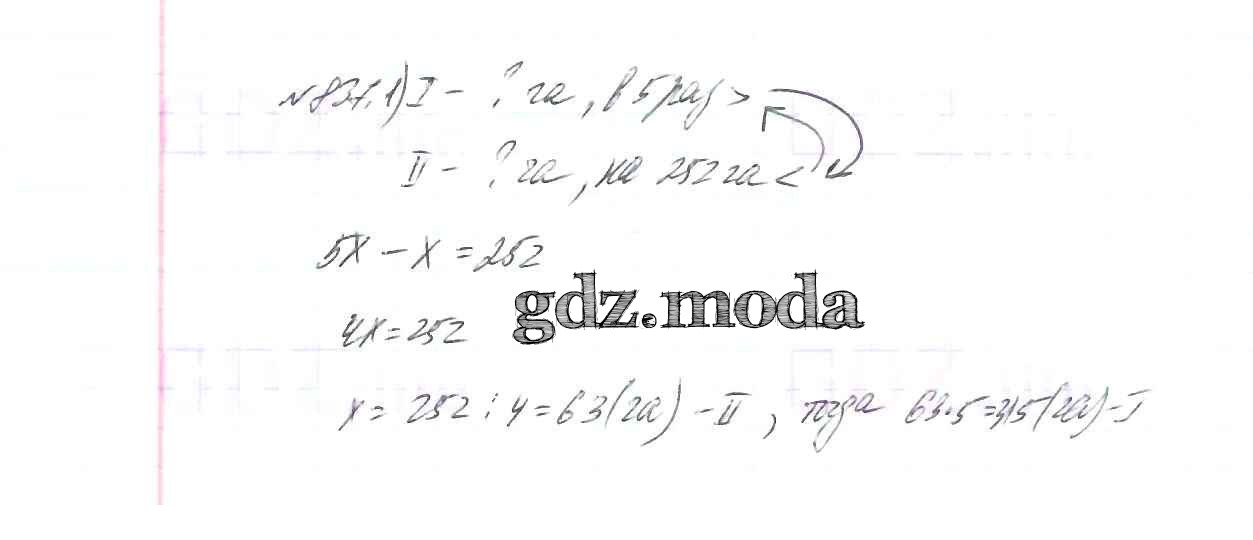 №837.1) I – ? га, в 5 раз >
II – ? га, на 252 га <
5x – x = 252
gdz.moda
4x = 252
x = 252 : 4 = 63 (га) – II, тогда 63·5=315 (га) – I